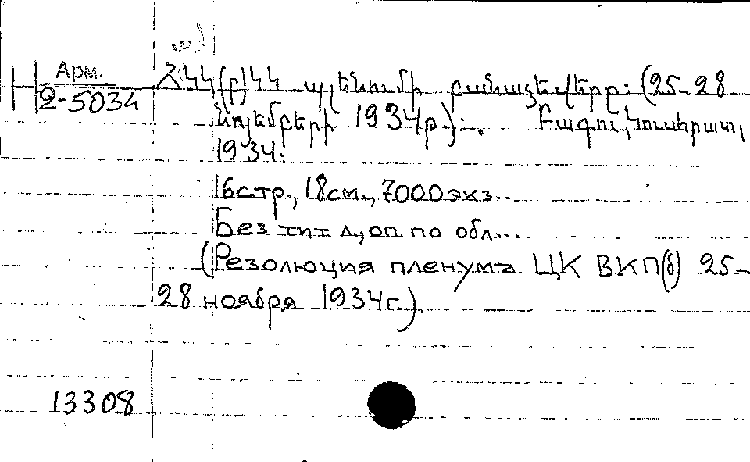 Арм.
2-5034
ՀԿԿ(բ)ԿԿ պլենումի բանաձեվերը: (25-28
նոյեմբերի 1934թ):-. Բագու, Կուսհրատ,
1934:
16стр., 18см., 7000экз.
Без тит л, оп по обл...
(Резолюция пленума ЦК ВКП(б) 25-
28 ноября 1934г.)
13308